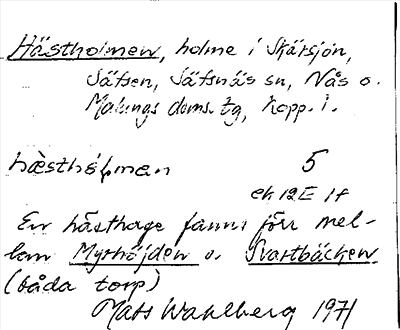 Hästholmen, holme i Skärsjön,
Säfsen, Säfsnäs sn, Nås o.
Malungs doms. tg, Kopp. l.
hæsthólman 5
ek 12E 1f
En hästhage fanns förr mel-
lan Myrhöjden o. Svartbäcken
(båda torp)
Mats Wahlberg 1971